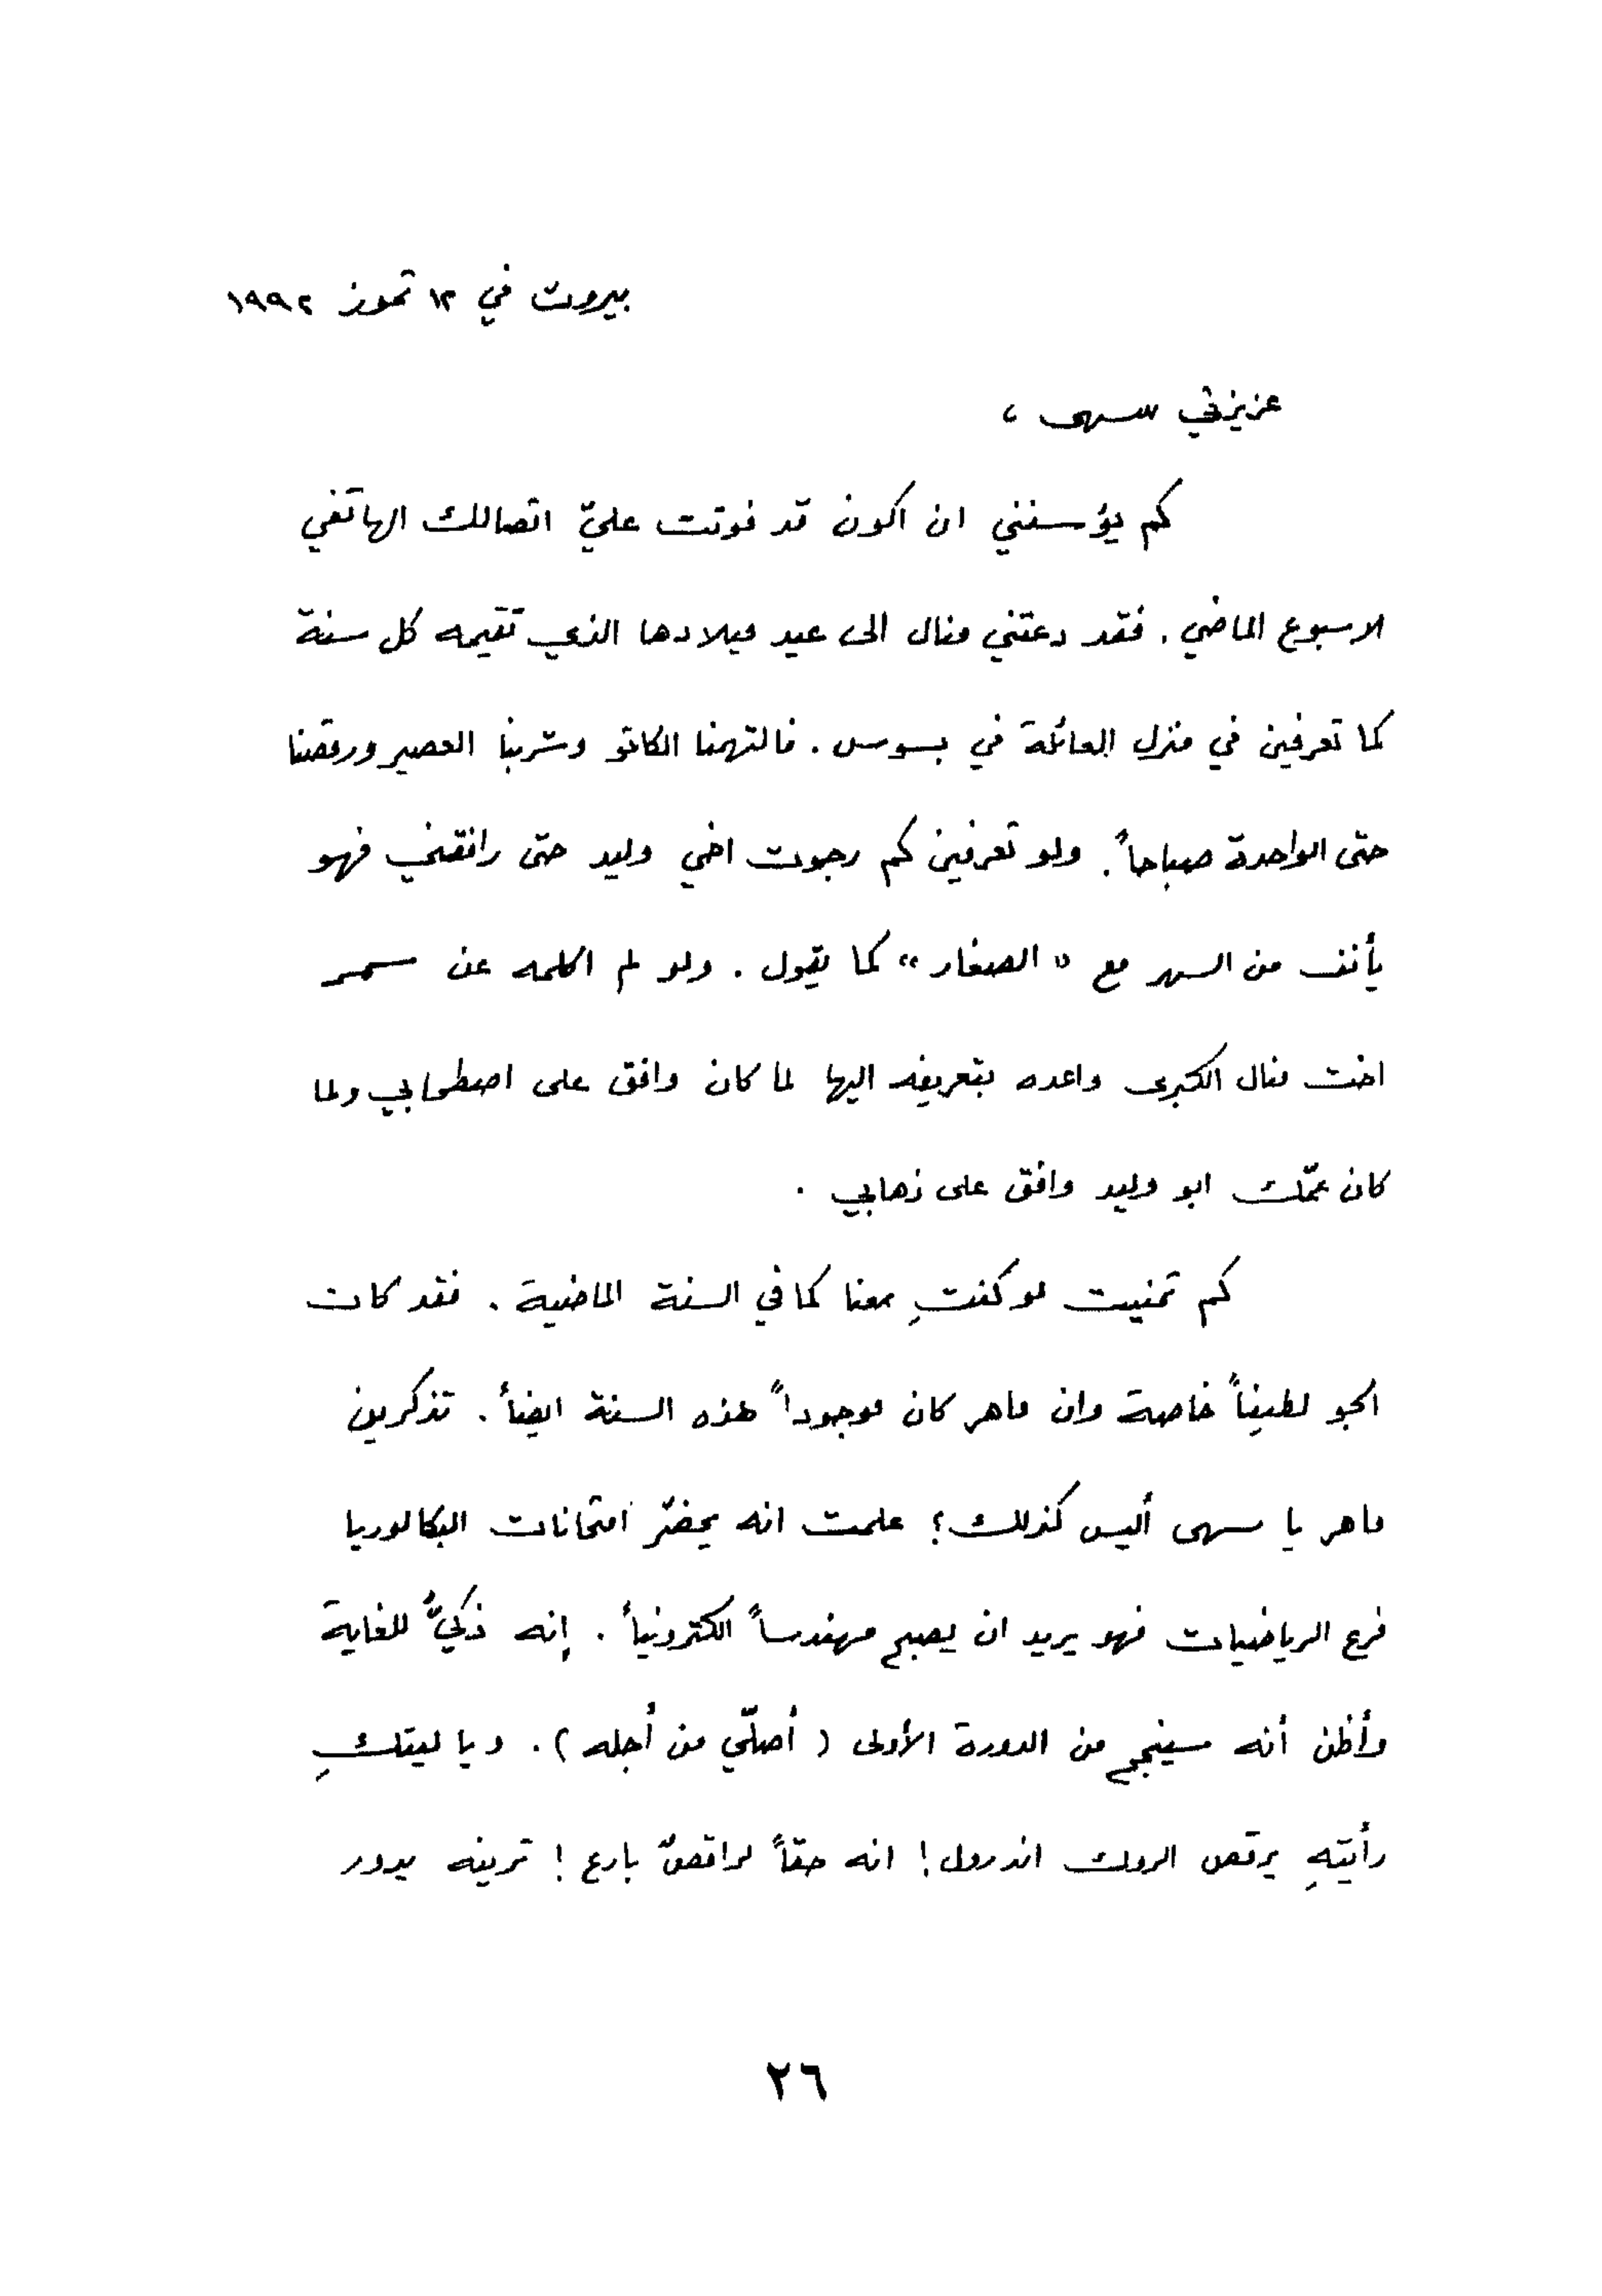 بيروت في ١٢ تموز ١٩٩٢
عزيزتي سهى ،
كم يؤسفني ان اكون قد فوتت عليّ اتصالك الهاتفي
الاسبوع الماضي . فقد دعتني منال الى عيد ميلادها الذي تقيمه كل سنة
كما تعرفين في منزل العائلة في بسوس . فالتهمنا الكاتو وشربنا العصير ورقصنا
حتى الواحدة صباحاً . ولو تعرفين كم رجوت اخي وليد حتى رافقني فهو
يأنف من السهر مع « الصغار » كما يقول . ولو لم اكلمه عن سمر
اخت منال الكبرى واعده بتعريفه اليها لما كان وافق على اصطحابي ولما
كان عمّك ابو وليد وافق على ذهابي .
كم تمنيت لو كنتِ معنا كما في السنة الماضية . فقد كات
الجو لطيفاً خاصة وان ماهر كان موجوداً هذه السنة ايضاً . تذكرين
ماهر يا سهى أليس كذلك ؟ علمت انه يحضّر امتحانات البكالوريا
فرع الرياضيات فهو يريد ان يصبح مهندساً الكترونياً . إنه ذكيٌّ للغاية
وأظن أنه سينجح من الدورة الأولى ( أصلّي من أجله ) . ويا ليتكِ
رأيتهِ يرقص الروك اندرول ! انه حقاً لراقصٌ بارع ! ترينه يدور
٢٦